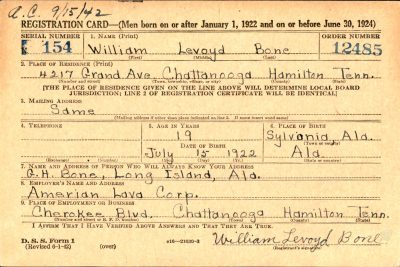 A.C. 9/15/42
REGISTRATION CARD—(Men born on or after January 1, 1922 and on or before June 30, 1924)
SERIAL NUMBER 1. NAME (Print) ORDER NUMBER
154 William Levoyd Bone 12485
(First) (Middle) (Last)
2. PLACE OF RESIDENCE (Print)
4217 Grand Ave Chattanooga Hamilton Tenn.
(Number and street) (Town, township, village, or city) (County) (State)
[THE PLACE OF RESIDENCE GIVEN ON THE LINE ABOVE WILL DETERMINE LOCAL BOARD
JURISDICTION; LINE 2 OF REGISTRATION CERTIFICATE WILL BE IDENTICAL]
3. MAILING ADDRESS
Same
(Mailing address if other than place indicated on line 2. If same insert word same)
4. TELEPHONE 5. AGE IN YEARS 6. PLACE OF BIRTH
19 Sylvania, Ala.
DATE OF BIRTH (Town or county)
July 15 1922 Ala.
(Mo.) (Day) (Yr.) (State or country)
7. NAME AND ADDRESS OF PERSON WHO WILL ALWAYS KNOW YOUR ADDRESS
G.H. Bone, Long Island, Ala.
8. EMPLOYER'S NAME AND ADDRESS
Amerian Lava Corp.
9. PLACE OF EMPLOYMENT OR BUSINESS
Cherokee Blvd. Chattanooga Hamilton Tenn.
(Number and street or R. F. D. number) (Town) (County) (State)
I AFFIRM THAT I HAVE VERIFIED ABOVE ANSWERS AND THAT THEY ARE TRUE.
D. S. S. Form 1
(Revised 6-1-42) (over) William Levoyd Bone
(Registrant's signature)